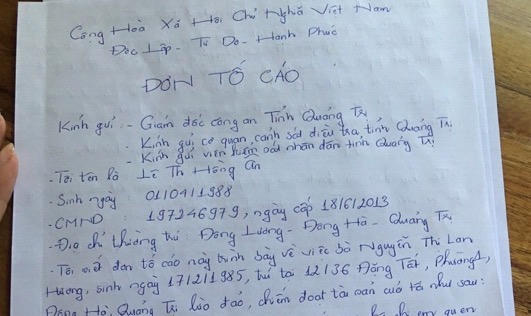 Cộng Hoà Xã Hội Chủ Nghĩa Việt Nam
Độc Lập - Tự Do - Hạnh Phúc
ĐƠN TỐ CÁO
Kính gửi: - Giám đốc công an Tỉnh Quảng Trị
- Kính gửi cơ quan cảnh sát điều tra tỉnh Quảng Trị
- Kính gửi viện kiểm sát nhân dân tỉnh Quảng Trị
- Tôi tên là Lê Th Hồng Ân
- Sinh ngày 01/04/1988
- CMND: 197246979, ngày cấp 18/6/2013
- Địa chỉ thường trú Đông Lương - Đông Hà - Quảng Trị
- Tôi viết đơn tố cáo này trình bày về việc bà Nguyễn Thị Lan
Hương, sinh ngày 17/2/1985, trú tại 12/36 Đặng Tất, Phường 1,
Đông Hà, Quảng Trị lừa đảo, chiếm đoạt tài sản của tôi như sau:
chị em quen